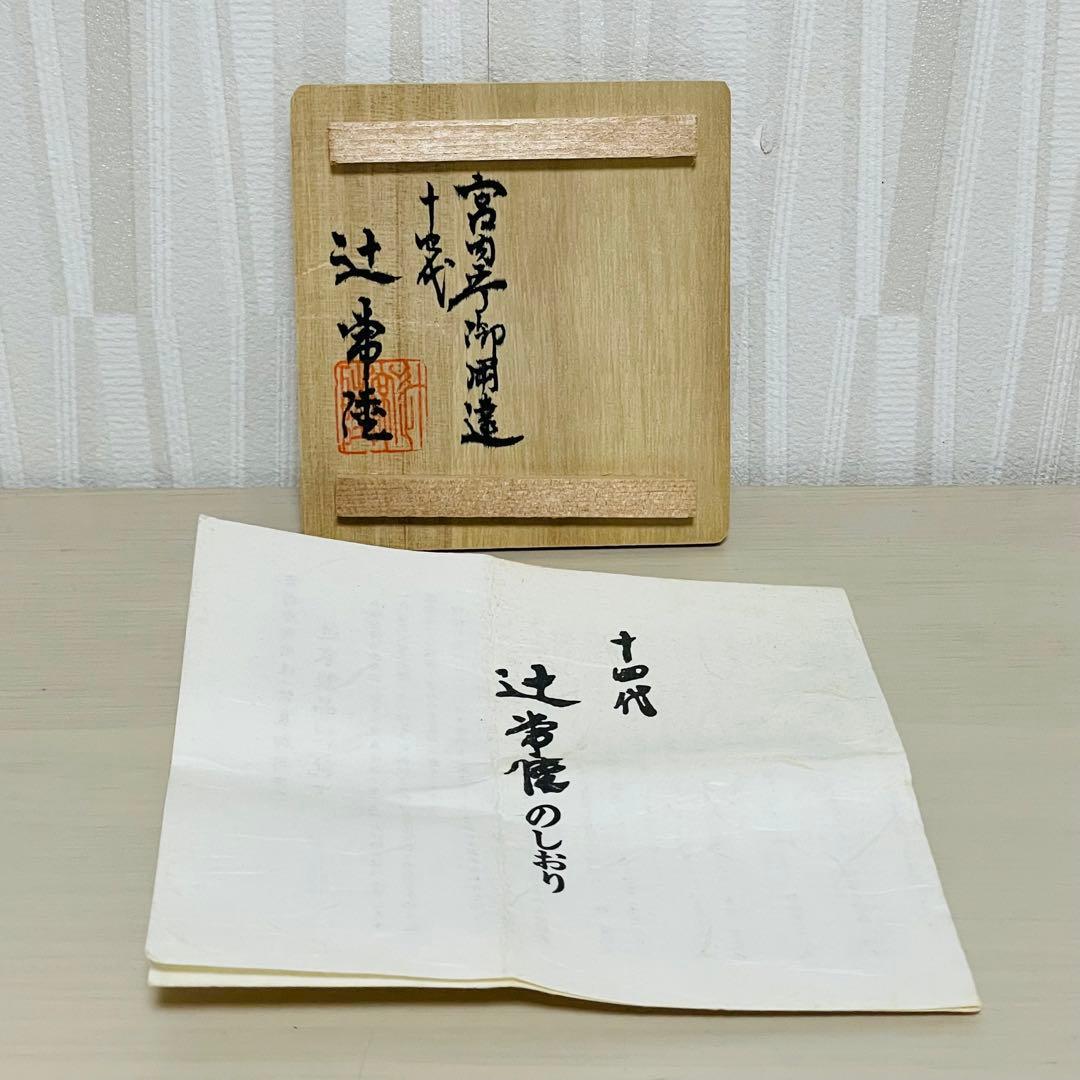 宮内庁御用達
十四代
辻常陸
十四代
辻常陸のしおり